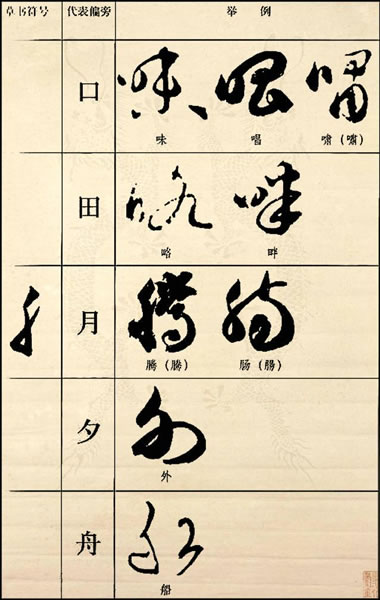 草书符号 代表偏旁 举例
口
味 唱 啸（嘯）
田
略 畔
月
腾（騰） 肠（腸）
夕
外
舟
船